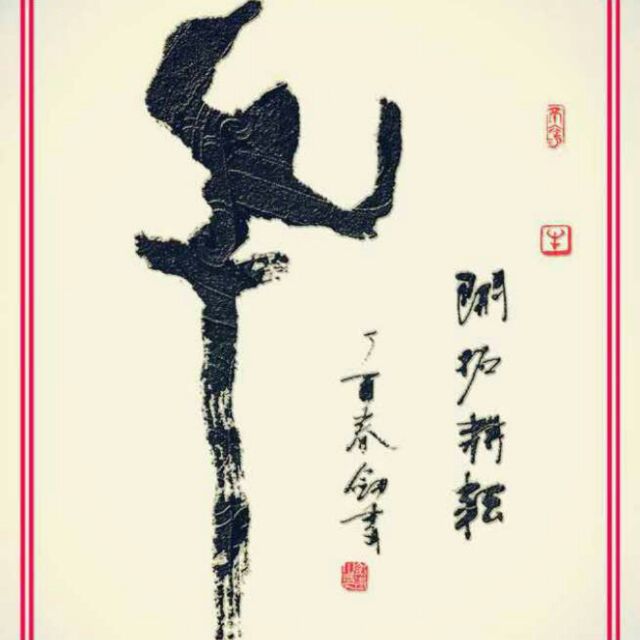 牛
開拓耕耘
丁酉春書